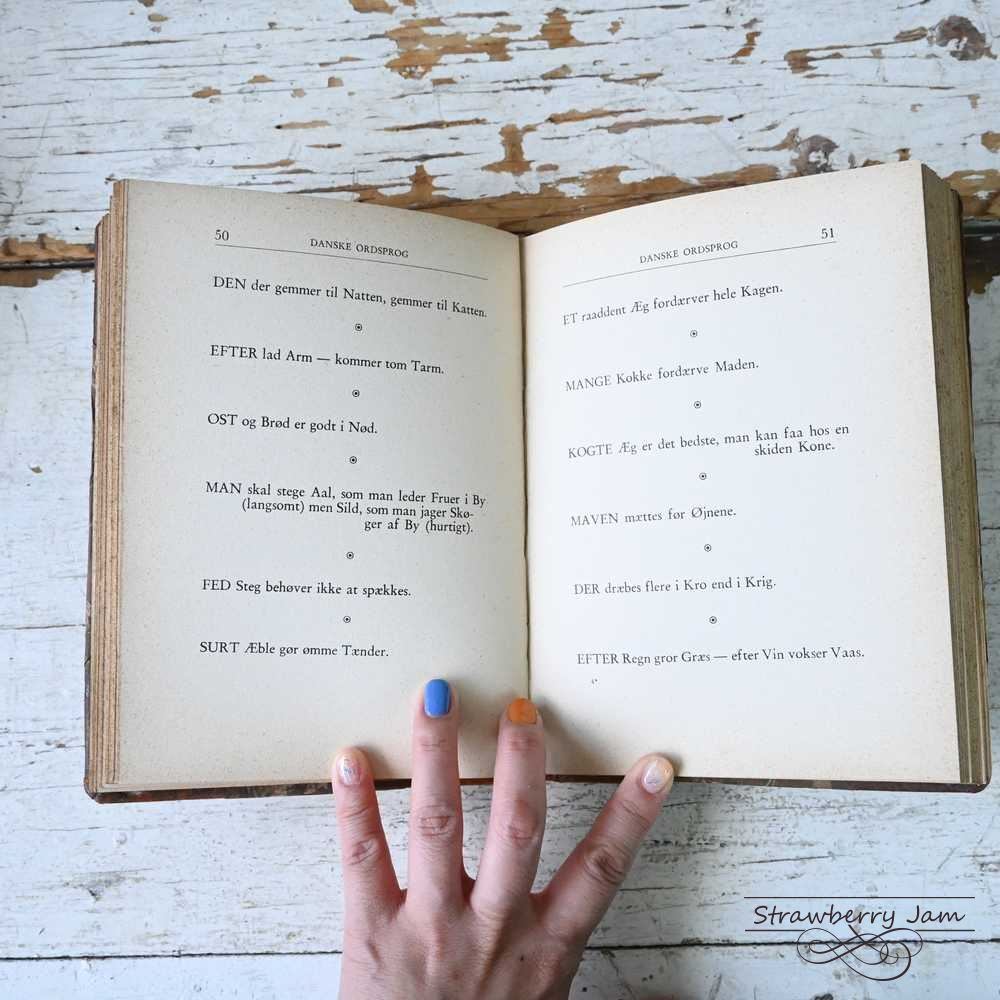 50
DANSKE ORDSPROG
DEN der gemmer til Natten, gemmer til Katten.
EFTER lad Arm — kommer tom Tarm.
OST og Brød er godt i Nød.
MAN skal stege Aal, som man leder Fruer i By
(langsomt) men Sild, som man jager Skø-
ger af By (hurtigt).
FED Steg behøver ikke at spækkes.
SURT Æble gør ømme Tænder.
DANSKE ORDSPROG
51
ET raaddent Æg fordærver hele Kagen.
MANGE Kokke fordærve Maden.
KOGTE Æg er det bedste, man kan faa hos en
skiden Kone.
MAVEN mættes før Øjnene.
DER dræbes flere i Kro end i Krig.
EFTER Regn gror Græs — efter Vin vokser Vaas.
Strawberry Jam